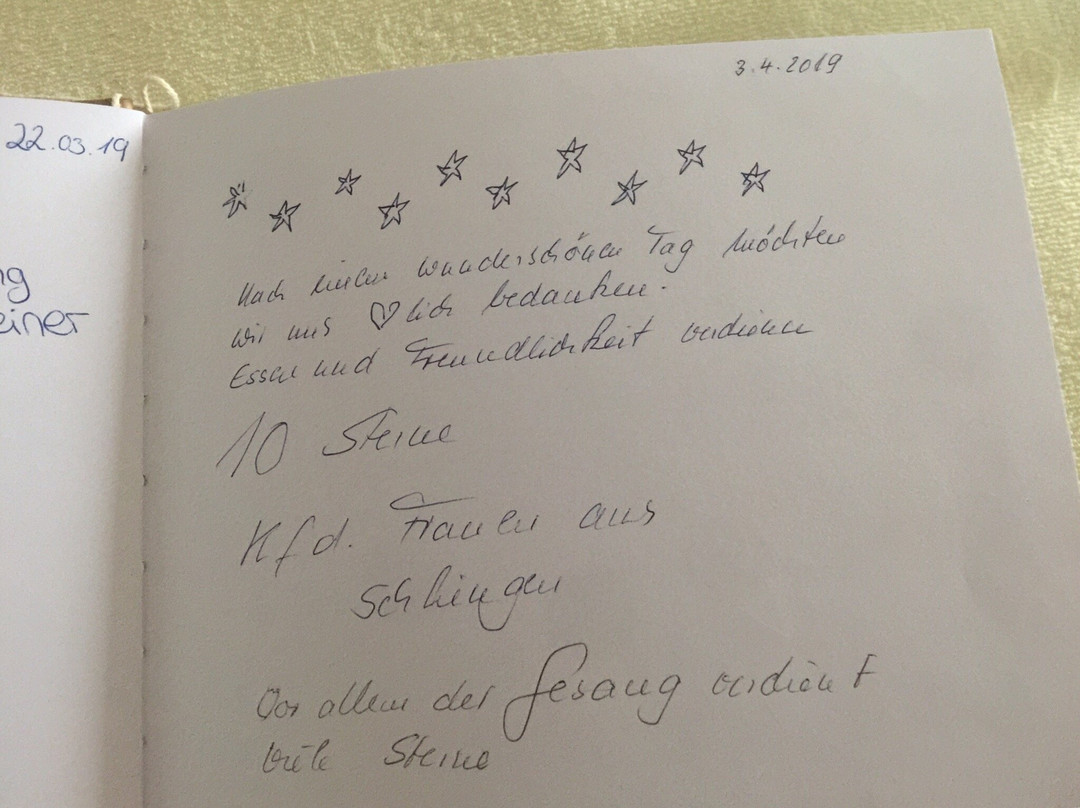 22.03.19
ng
einer
3.4.2019
Nach einem wunderschönen Tag möchten
wir uns ♡lich bedanken.
Essen und Freundlichkeit verdienen
10 Sterne
Kfd. Frauen aus
Schliengen
Vor allem der Gesang verdient
viele Sterne